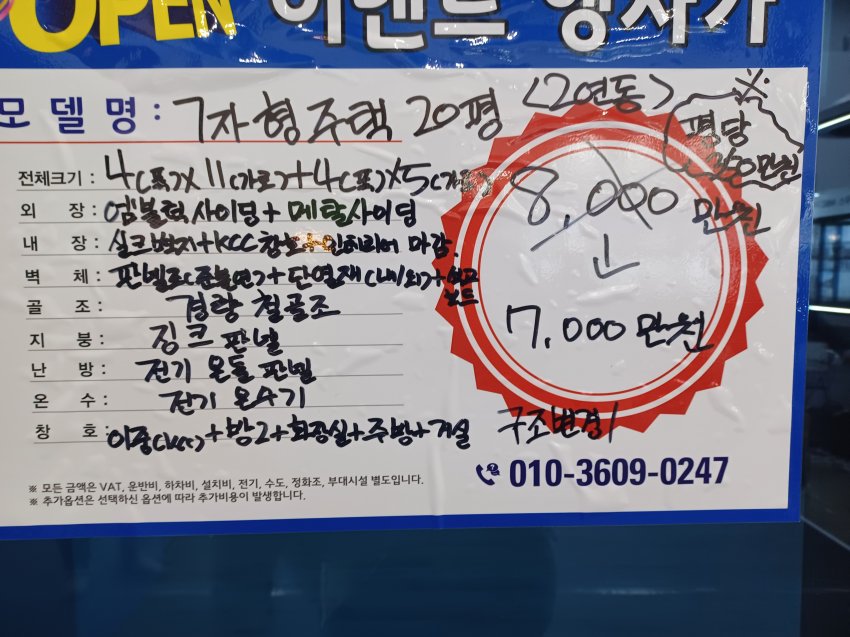 OPEN 이벤트 행사가
모델명 : ㄱ자형주택 20평 <2연동>
※ 평당 350만원
전체크기 : 4(폭)X11(가로)+4(폭)X5(가로)
외 장 : 엠블럭사이딩+메탈사이딩
내 장 : 실크벽지+KCC창호+인테리어 마감.
벽 체 : 판넬조(준불연)+단열재(내/외)+석고보드
골 조 : 경량 철골조
지 붕 : 징크 판넬
난 방 : 전기 온돌 판넬
온 수 : 전기 온수기
창 호 : 이중(kcc)+방2+화장실+주방+거실
8,000 만원
7,000 만원
구조변경!
010-3609-0247
※ 모든 금액은 VAT, 운반비, 하차비, 설치비, 전기, 수도, 정화조, 부대시설 별도입니다.
※ 추가옵션은 선택하신 옵션에 따라 추가비용이 발생합니다.